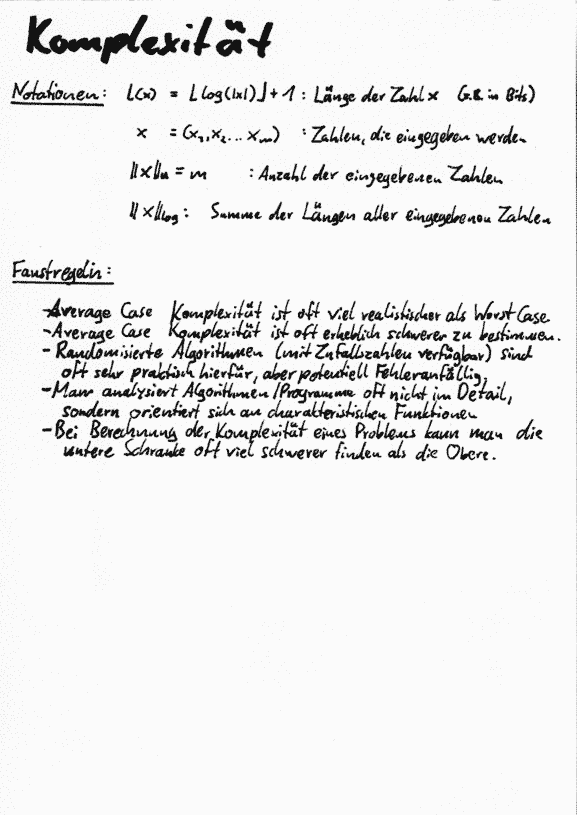 Komplexität
Notationen: L(x) = ⌊log(|x|)⌋ + 1 : Länge der Zahl x (z.B. in Bits)
x = (x₁, x₂ ... xₘ) : Zahlen, die eingegeben werden
||x||ᵤ = m : Anzahl der eingegebenen Zahlen
||x||log : Summe der Längen aller eingegebenen Zahlen
Faustregeln:
-Average Case Komplexität ist oft viel realistischer als Worst Case
-Average Case Komplexität ist oft erheblich schwerer zu bestimmen.
- Randomisierte Algorithmen (mit Zufallszahlen verfügbar) sind
oft sehr praktisch hierfür, aber potentiell Fehleranfällig,
- Man analysiert Algorithmen/Programme oft nicht im Detail,
sondern orientiert sich an charakteristischen Funktionen
- Bei Berechnung der Komplexität eines Problems kann man die
untere Schranke oft viel schwerer finden als die Obere.